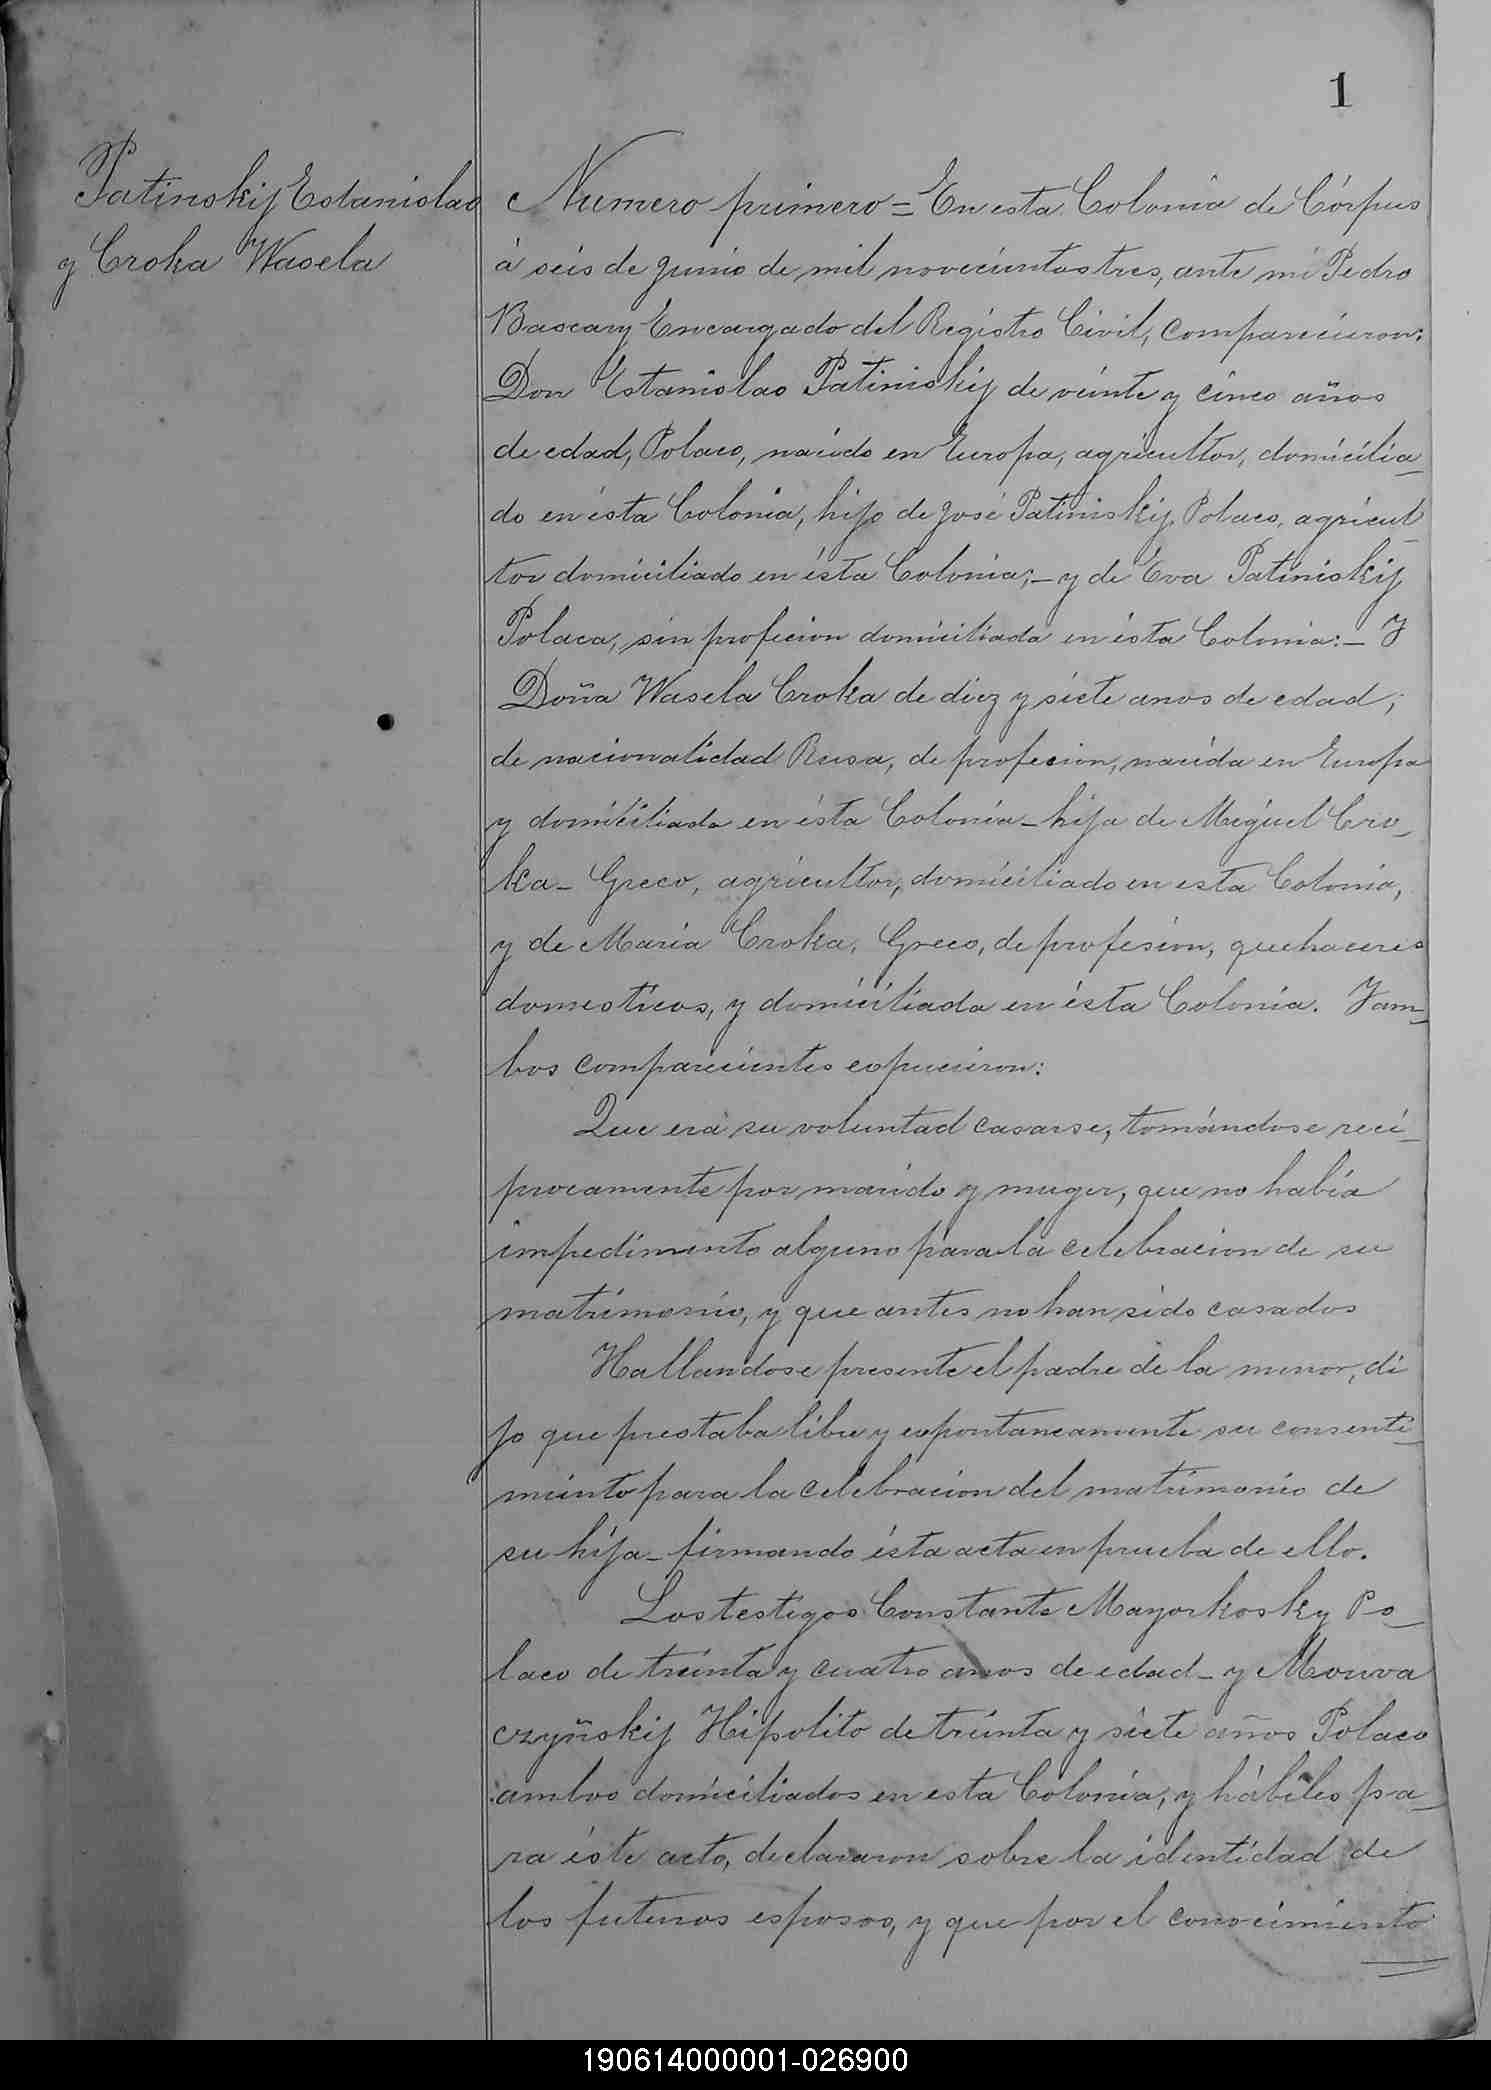 1
Patinskij Estanislao
y Croka Wasela
Numero primero = En esta Colonia de Córpus
á seis de Junio de mil novecientos tres, ante mi Pedro
Bascary Encargado del Registro Civil, comparecieron:
Don Estanislao Patiniskij de veinte y cinco años
de edad, Polaco, nacido en Europa, agricultor, domicilia_
do en ésta Colonia, hijo de José Patiniskij, Polaco, agricul_
tor domiciliado en ésta Colonia;_ y de Eva Patiniskij
Polaca, sin profecion domiciliada en ésta Colonia:_ Y
Doña Wasela Croka de diez y siete anos de edad,
de nacionalidad Rusa, de profecion, nacida en Europa
y domiciliada en ésta Colonia_ hija de Miguel Cro_
ka_ Greco, agricultor, domiciliado en esta Colonia,
y de Maria Croka, Greco, de profesion, quehaceres
domesticos, y domiciliada en ésta Colonia. Yam_
bos comparecientes espucieron:
Que era su voluntad casarse, tomándose reci_
procamente por marido y muger, que no había
impedimento alguno para la celebracion de su
matrimonio, y que antes no han sido casados
Hallandose presente el padre de la menor, di
jo que prestaba libre y espontaneamente su consenti_
miento para la celebracion del matrimonio de
su hija_ firmando ésta acta en prueba de ello.
Los testigos Constante Mayorkosky Po_
laco de treinta y cuatro anos de edad_ y Mouva
czyñskij Hipolito de treinta y siete años Polaco
ambos domiciliados en esta Colonia, y hábiles pa_
ra éste acto, declararon sobre la identidad de
los futuros esposos, y que por el conocimiento
190614000001-026900